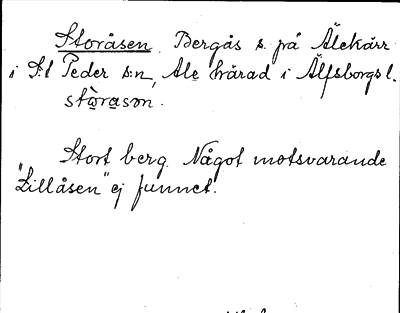 Storåsen. Bergås s. på Älekärr
i S:t Peder s:n, Ale härad i Älfsborgs l.
stɷ̀rasɷn.
Stort berg. Något motsvarande
"Lillåsen" ej funnet.